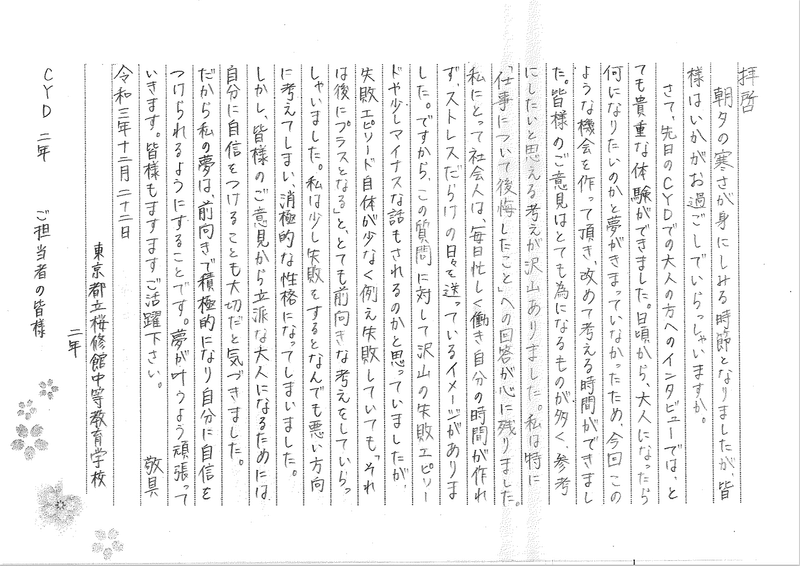 拝啓
朝夕の寒さが身にしみる時節となりましたが、皆
様はいかがお過ごしでいらっしゃいますか。
さて、先日のCYDでの大人の方へのインタビューでは、と
ても貴重な体験ができました。日頃から、大人になったら
何になりたいのかと夢がきまっていなかったため、今回この
ような機会を作って頂き、改めて考える時間ができまし
た。皆様のご意見はとても為になるものが多く、参考
にしたいと思える考えが沢山ありました。私は特に
「仕事について後悔したこと」への回答が心に残りました。
私にとって社会人は、毎日忙しく働き自分の時間が作れ
ず、ストレスだらけの日々を送っているイメージがありま
した。ですから、この質問に対して沢山の失敗エピソー
ドや少しマイナスな話もされるのかと思っていましたが、
失敗エピソード自体が少なく例え失敗していても「それ
は後にプラスとなる」と、とても前向きな考えをしていらっ
しゃいました。私は少し失敗をするとなんでも悪い方向
に考えてしまい消極的な性格になってしまいました。
しかし、皆様のご意見から立派な大人になるためには、
自分に自信をつけることも大切だと気づきました。
だから私の夢は、前向きで積極的になり自分に自信を
つけられるようにすることです。夢が叶うよう頑張って
いきます。皆様もますますご活躍下さい。
敬具
令和三年十二月二十二日
東京都立桜修館中等教育学校
二年
CYD 二年
ご担当者の皆様